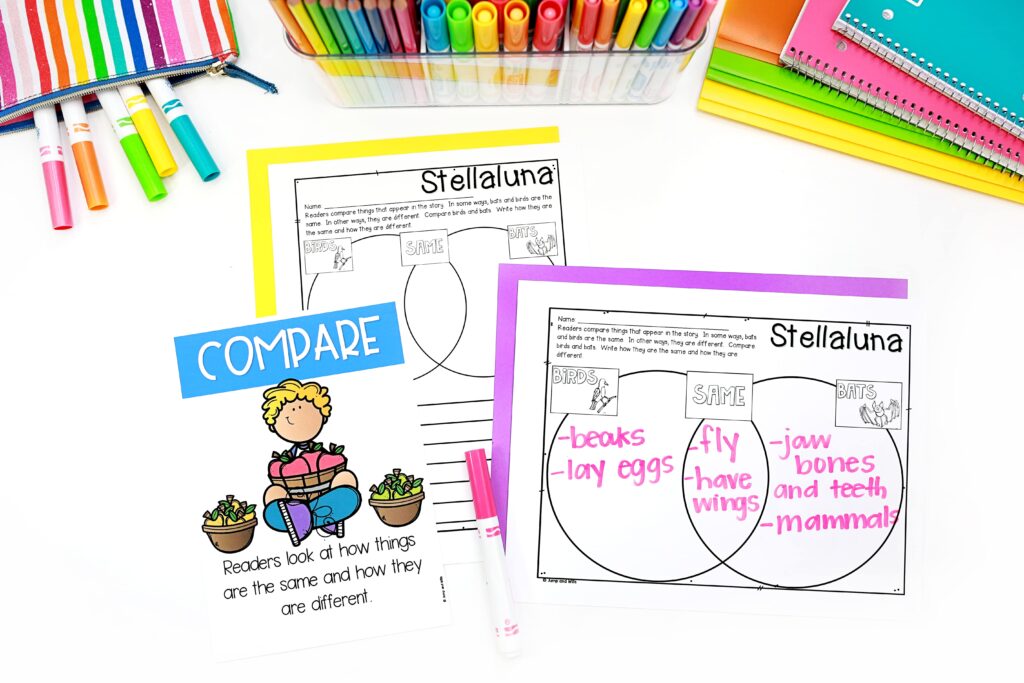 Stellaluna
Name
Readers compare things that appear in the story. In some ways, bats and birds are the
same. In other ways, they are different. Compare birds and bats. Write how they are
the same and how they are different.
BIRDS
SAME
BATS
COMPARE
Readers look at how things
are the same and how they
are different.
Name
Readers compare things that appear in the story. In some ways, bats
and birds are the same. In other ways, they are different. Compare
birds and bats. Write how they are the same and how they are
different.
Stellaluna
BIRDS
SAME
BATS
-beaks
-lay eggs
-fly
-have
wings
-jaw
bones
and teeth
-mammals
© Jump and Win